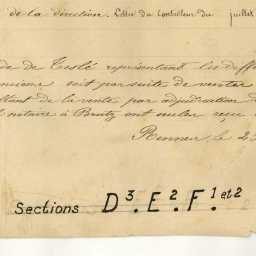 de la direction. Lettre du Contrôleur du juillet
de de Toslé représentant les diff
soit par suite de ventes
de la vente par adjudication d
notaire à Bruz ont seules reçu
Rennes, le 2
Sections D³.E².F.¹ et ²